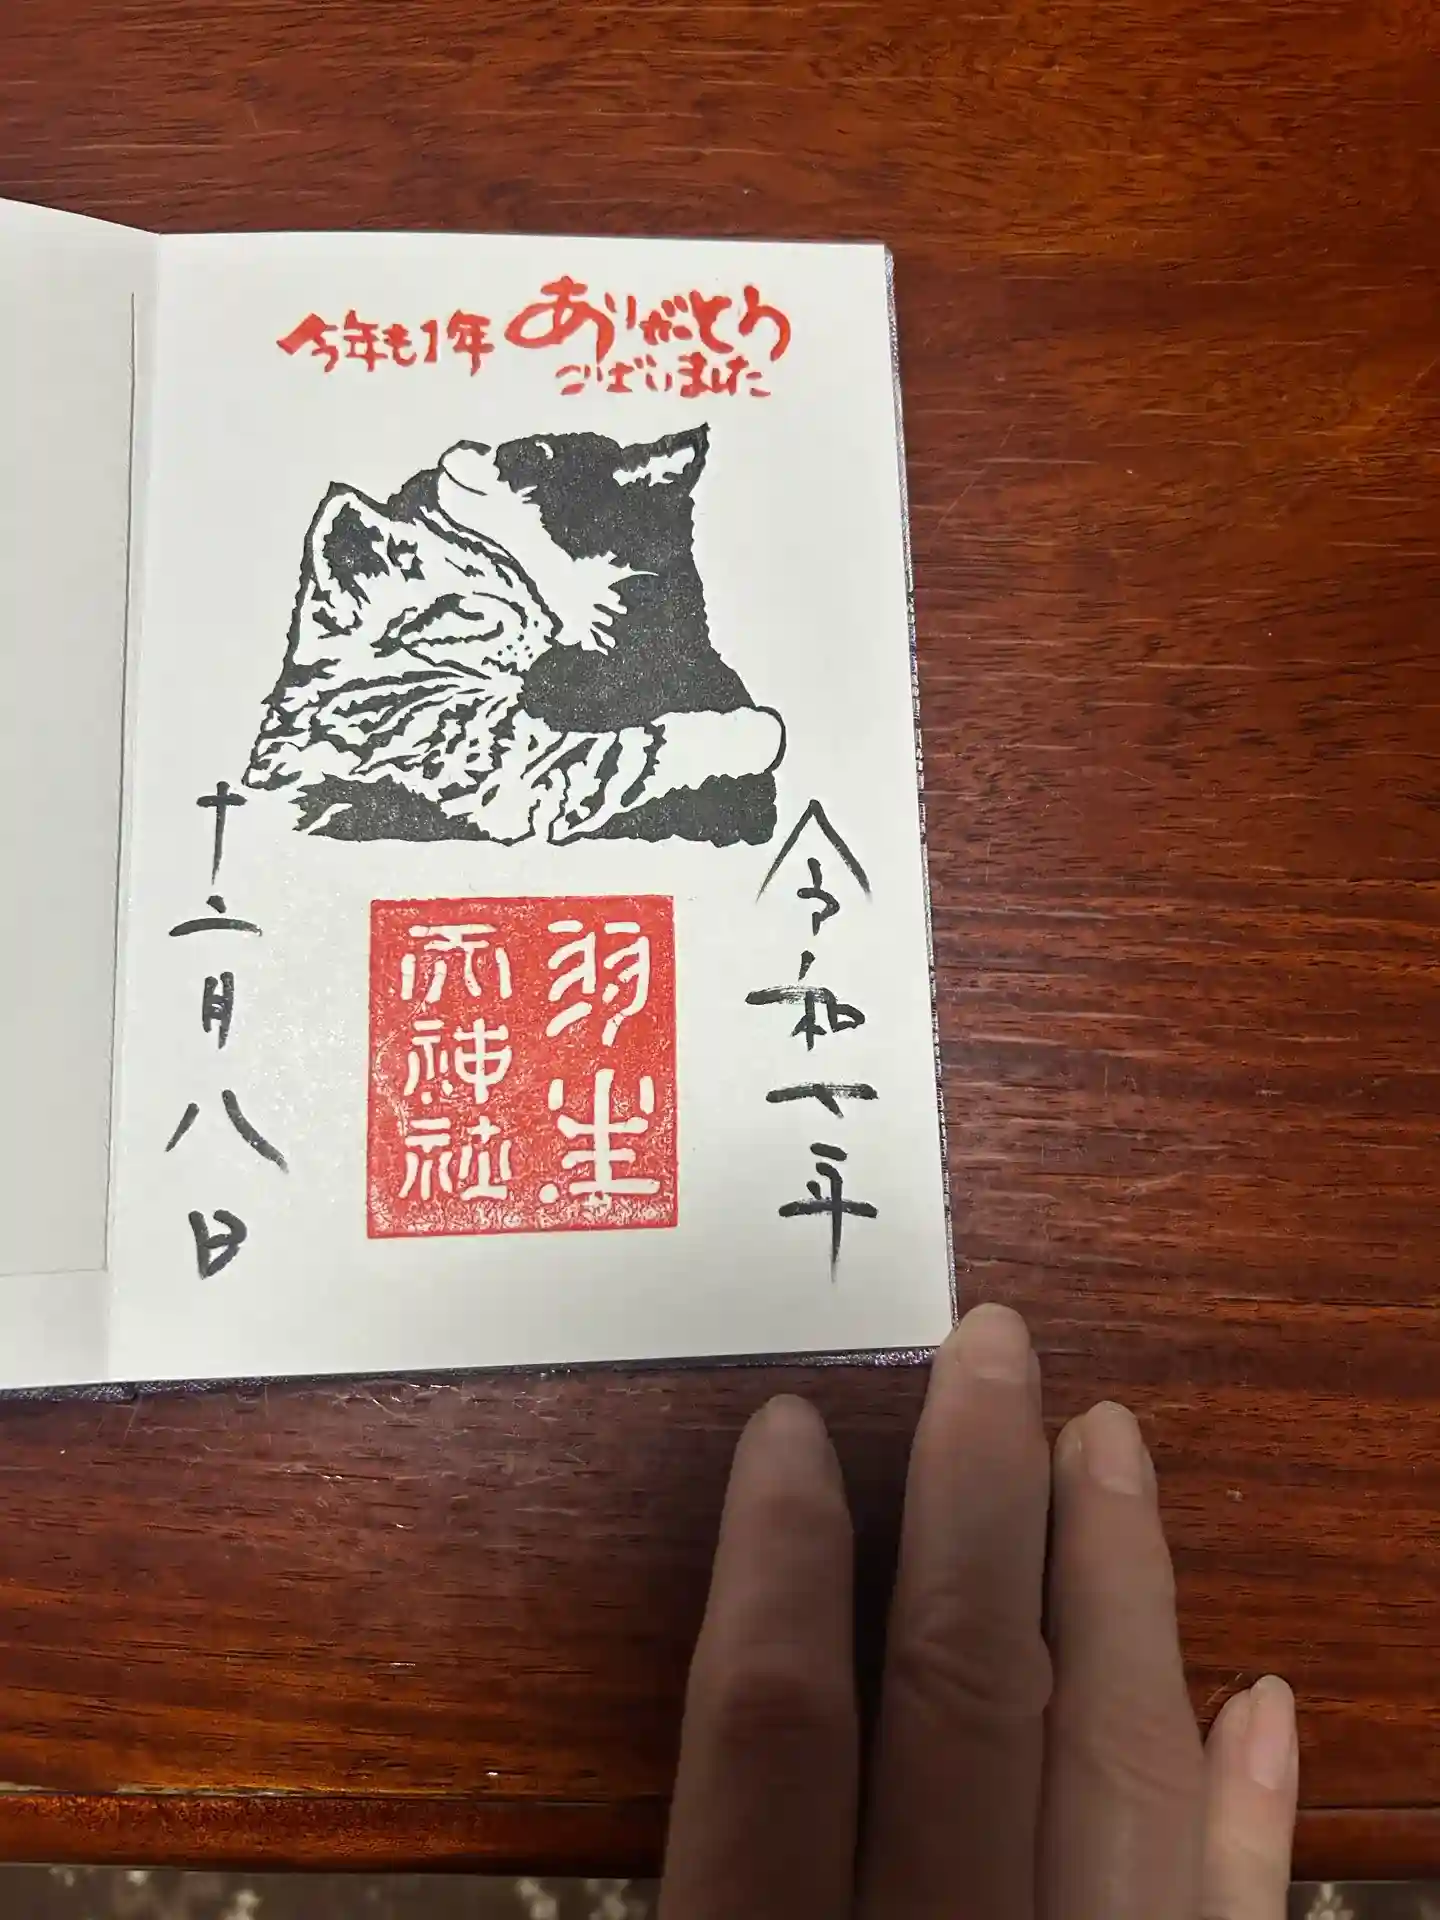 今年も1年ありがとう
ございました
令和
年
羽生
天神社
十二月八日